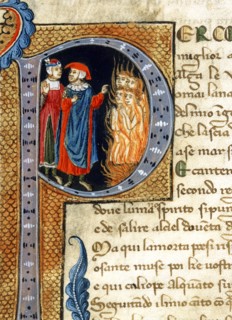 PERCO
miglior a
alça le v
omai la na
del mio ig
che lascia
a se mar
E canter
secondo re
doue lumã spirito si pur
e de salire al ciel douēta d
Ma qui la morta poesi res
o sante muse poi ke uostr
e qui caliope alquāto su
Seguitādo il mio cāto cō q